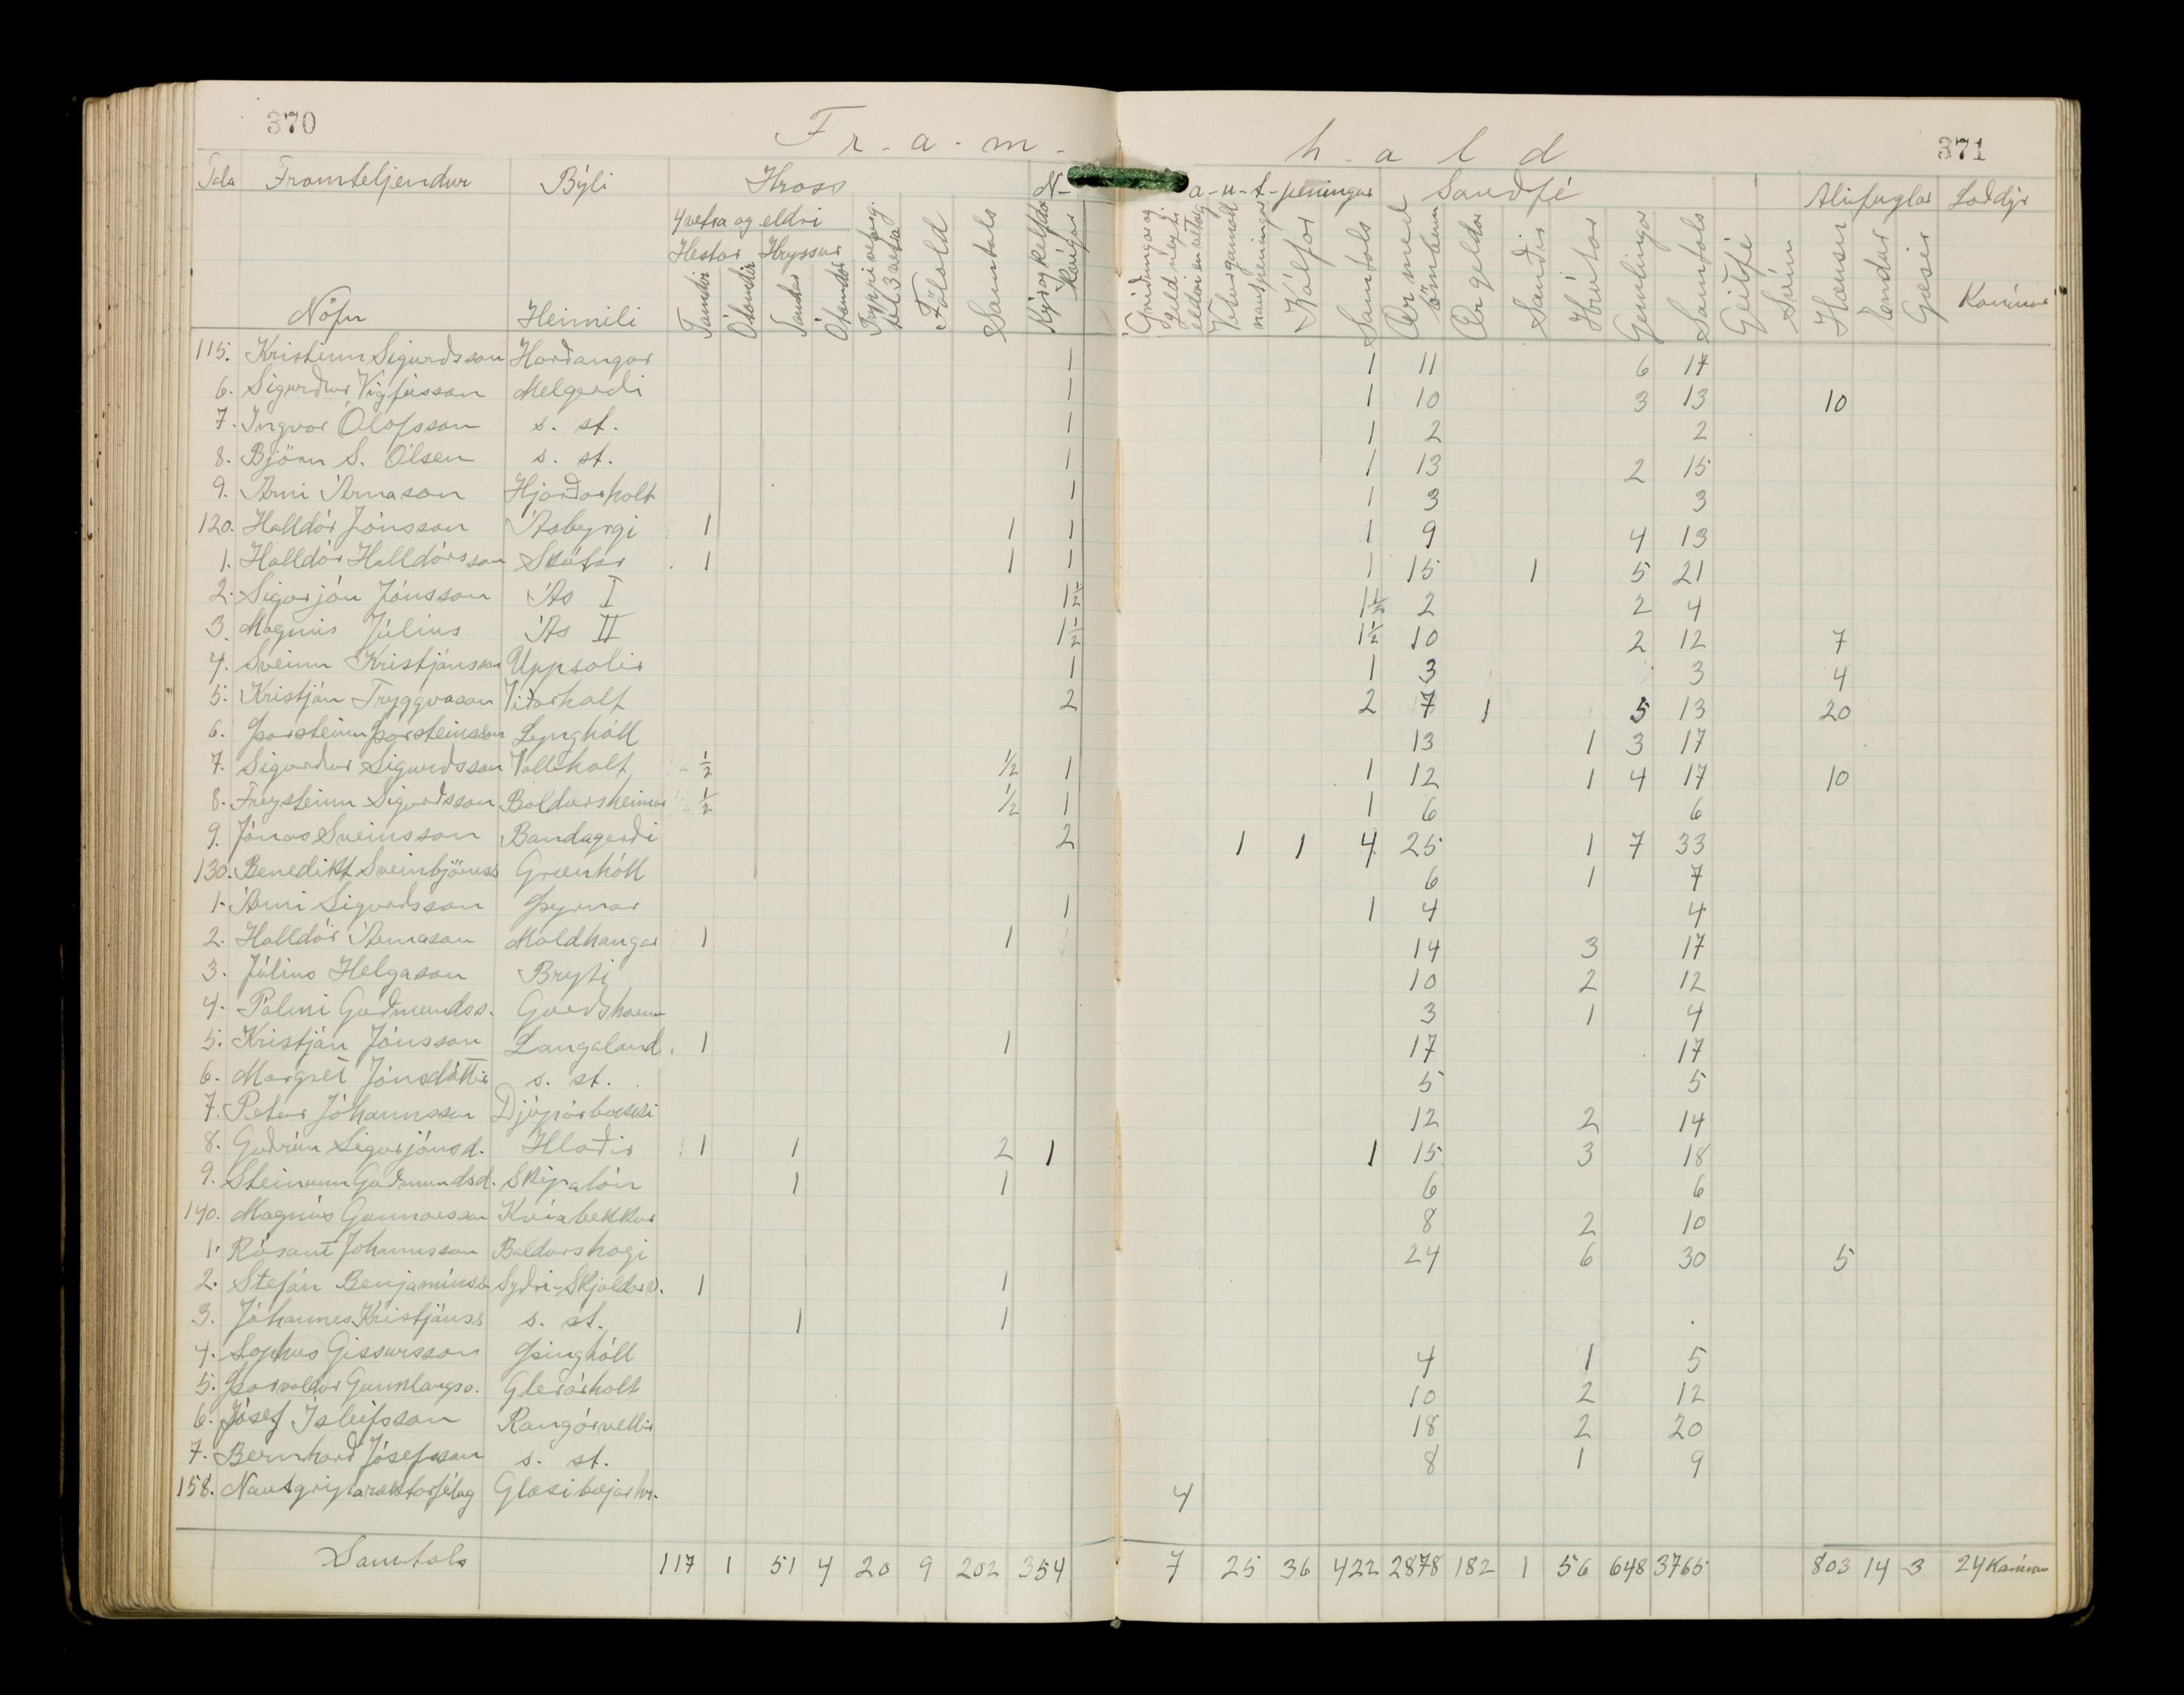 370
F r - a - m -
h - a l d
371
Tala Framteljendur Býli Hross N- a-u-t-peningur Sauðfé Alifuglar Loðdýr
4 vetra og eldri
Hestar Hryssur
Nöfn Heimili Tamdir Ótamdir Tamdar Ótamdar Tryppi veturg. til 3 vetra Fölöld Samtals Kýr og kelfdar kvígur Griðungar og geldneyti eldri en vetrag. Veturgamall nautpeningur Kálfar Samtals Ær með lömbum Ær geldar Sauðir Hrútar Gemlingar Samtals Geitfé Svín Hænsn Endur Gæsir Kanínur
115. Kristinn Sigurðsson Harðangur 1 1 11 6 17
6. Sigurður Vigfússon Melgerði 1 1 10 3 13 10
7. Ingvar Ólafsson s. st. 1 1 2 2
8. Björn S. Ólsen s. st. 1 1 13 2 15
9. Árni Árnason Hjarðarholt 1 1 3 3
120. Halldór Jónsson Ásbyrgi 1 1 1 1 9 4 13
1. Halldór Halldórsson Skútar 1 1 1 1 15 1 5 21
2. Sigurjón Jónsson Ás I 1½ 1½ 2 2 4
3. Magnús Júlíus Ás II 1½ 1½ 10 2 12 7
4. Sveinn Kristjánsson Uppsalir 1 1 3 3 4
5. Kristján Tryggvason Viðarholt 2 2 7 1 5 13 20
6. Þorsteinn Þorsteinsson Lynghóll 13 1 3 17
7. Sigurður Sigurðsson Vallholt ½ ½ 1 1 12 1 4 17 10
8. Freysteinn Sigurðsson Baldursheimur ½ ½ 1 1 6 6
9. Jónas Sveinsson Bandagerði 2 1 1 4 25 1 7 33
130. Benedikt Sveinbjörnss Grænhóll 6 1 7
1. Árni Sigurðsson Þyrnar 1 1 4 4
2. Halldór Árnason Moldhaugar 1 1 14 3 17
3. Júlíus Helgason Bryti 10 2 12
4. Pálmi Guðmundss. 3 1 4
5. Kristján Jónsson Langaland 1 1 17 17
6. Margrét Jónsdóttir s. st. 5 5
7. Petur Jóhannsson Djúpárbakki 12 2 14
8. Guðrún Sigurjónsd. Hlaðir 1 1 2 1 1 15 3 18
9. Steinunn Guðmundsd. Skipalón 1 1 6 6
140. Magnús Gunnarsson Kvíabekkur 8 2 10
1. Rósant Jóhannsson Baldurshagi 24 6 30 5
2. Stefán Benjamínss. Syðri-Skjaldarv. 1 1
3. Jóhannes Kristjánss s. st. 1 1
4. Sophus Gissursson Þinghóll 4 1 5
5. Þorvaldur Gunnlaugss. Glerárholt 10 2 12
6. Jósef Ísleifsson Rangárvellir 18 2 20
7. Bernharð Jósefsson s. st. 8 1 9
158. Nautgriparæktarfélag Glæsibæjarhr. 4
Samtals 117 1 51 4 20 9 202 354 7 25 36 422 2878 182 1 56 648 3765 803 14 3 24 Kanínur